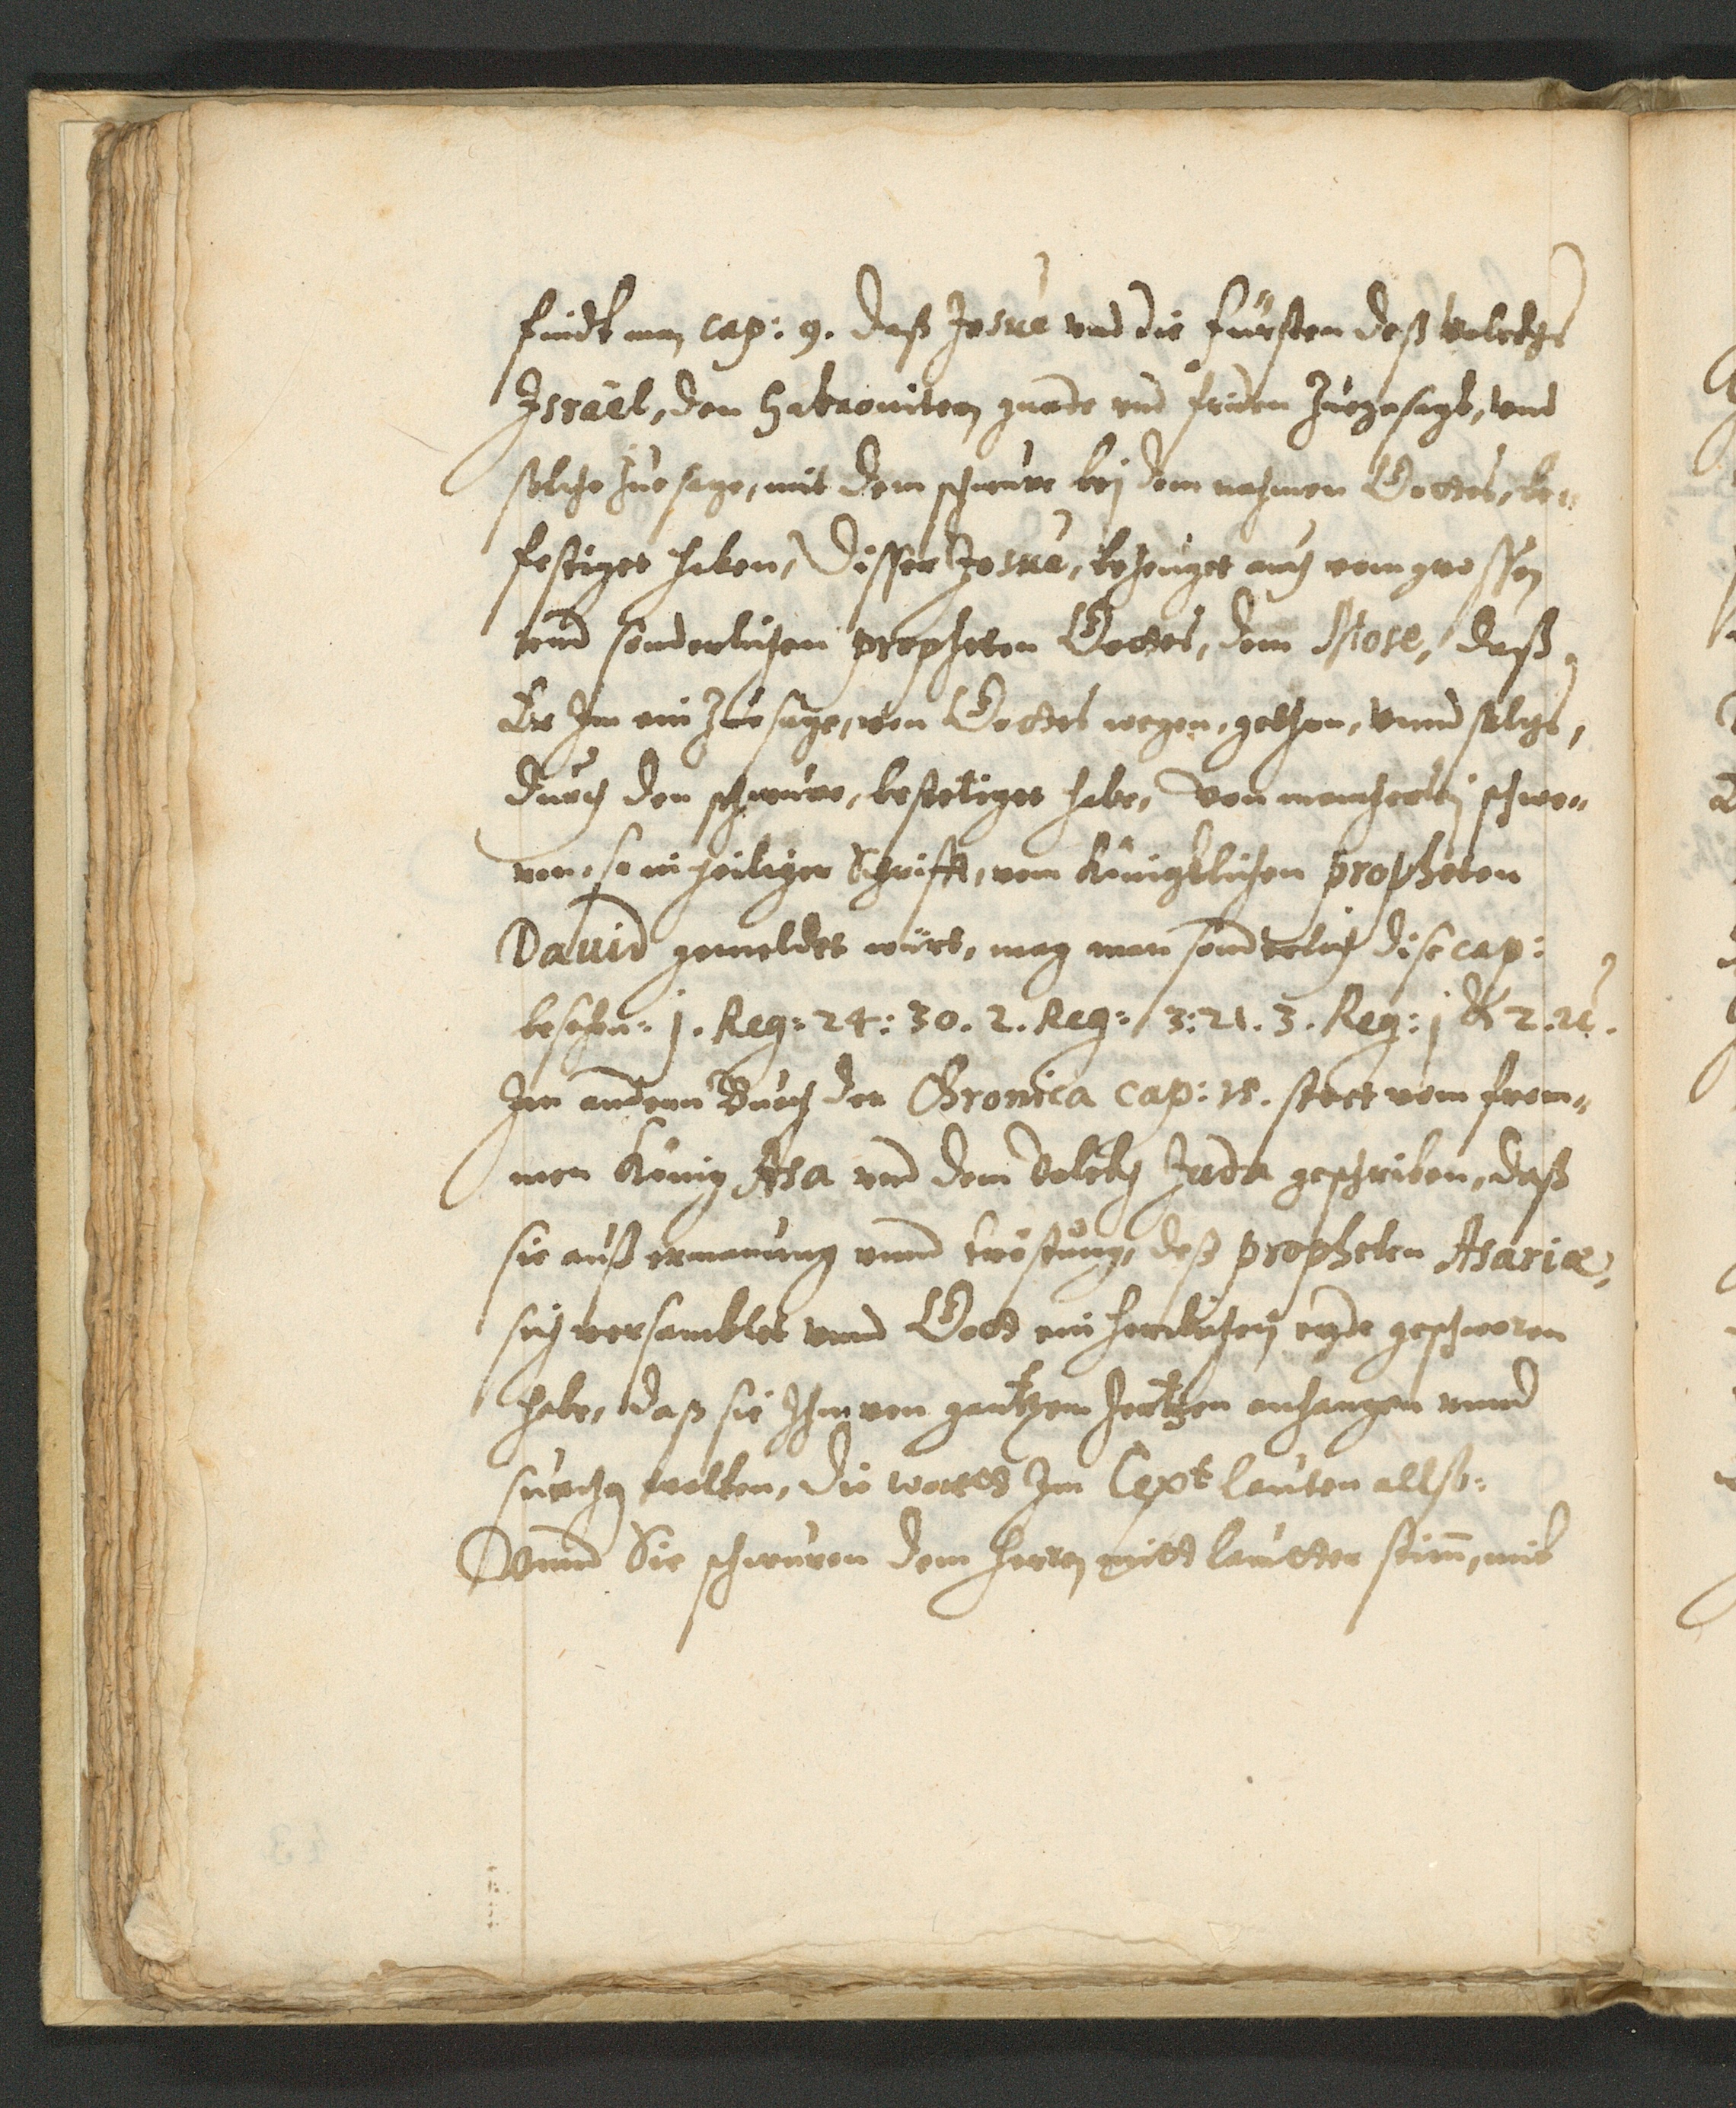 findt man cap: 9. daß Josue vnd die fürsten deß volckhs
Israel, den Gabaoniten gnade vnd friden zuegesagt, vnd
solche zuesage, mit dem schwure bej dem nahmen Gottes, be„
festiget haben, Disser Josue, bezeuget auch vom grossen
vnd sonderlichen propheten Gottes, dem Mose, daß
Er Im ein zuesage, von Gottes wegen, gethon, vnnd solchs,
durch den schwure, bestetiget habe, Von mancherlej schwe„
ren, so in heiliger Schrifft, vom Königklichen propheten
Dauid gemeldet würt, mag man sonderlich dise cap:
besehen: j. Reg: 24: 30. 2. Reg: 3: 21. 3. Reg: j & 2.
Im andern Buch der Chronica cap: 15. stett vom from„
men König Asa vnd dem Volckh Juda geschriben, daß
sie auß ermanung vnnd tröstung, deß propheten Asariæ,
sich versamblet vnnd Gott ein herrlichen eyde geschworen
habe, daß sie Ihm von gantzem hertzen anhangen vnnd
suechen wolten, die wortt Im Text lauten allso:
Vnnd Sie schwuren dem herren mitt lautter stim̄, mit